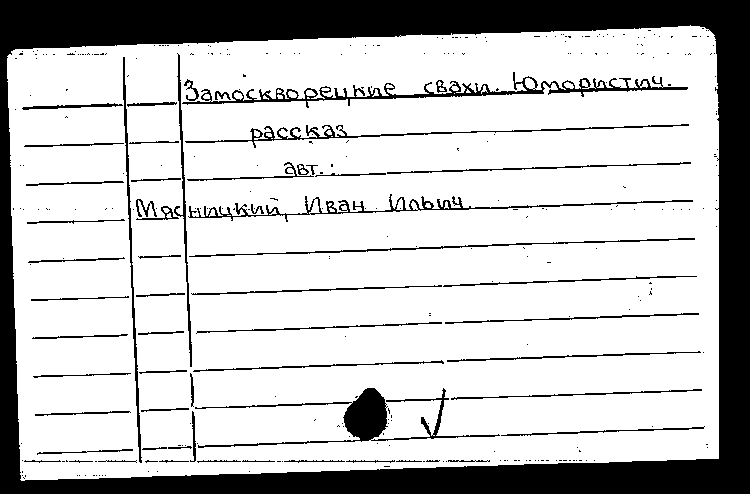 Замоскворецкие свахи. Юмористич.
рассказ
авт.:
Мясницкий, Иван Ильич